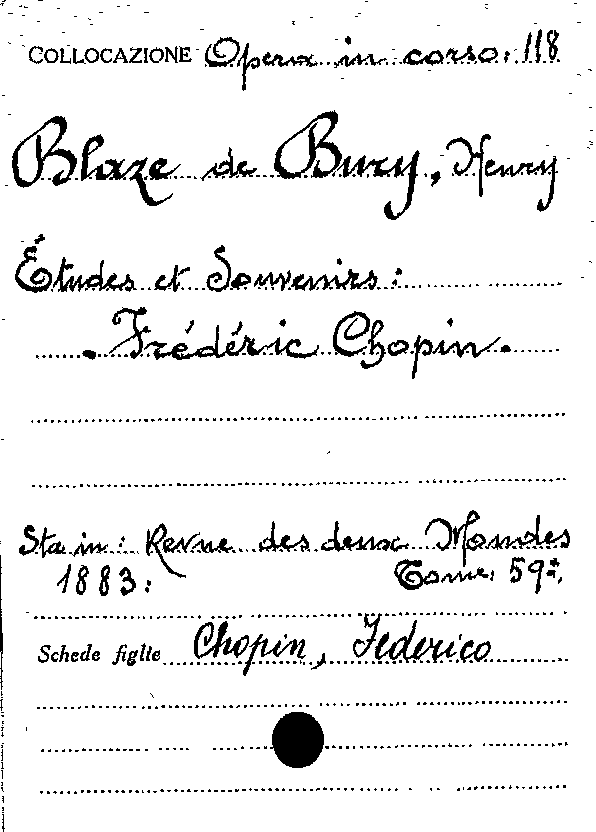 COLLOCAZIONE Opera in corso: 118
Blaze de Bury, Henry
Études et Souvenirs:
. Frédéric Chopin.
Sta in: Revue des deux Mondes
1883: Tome: 59º.
Schede figlie Chopin, Federico